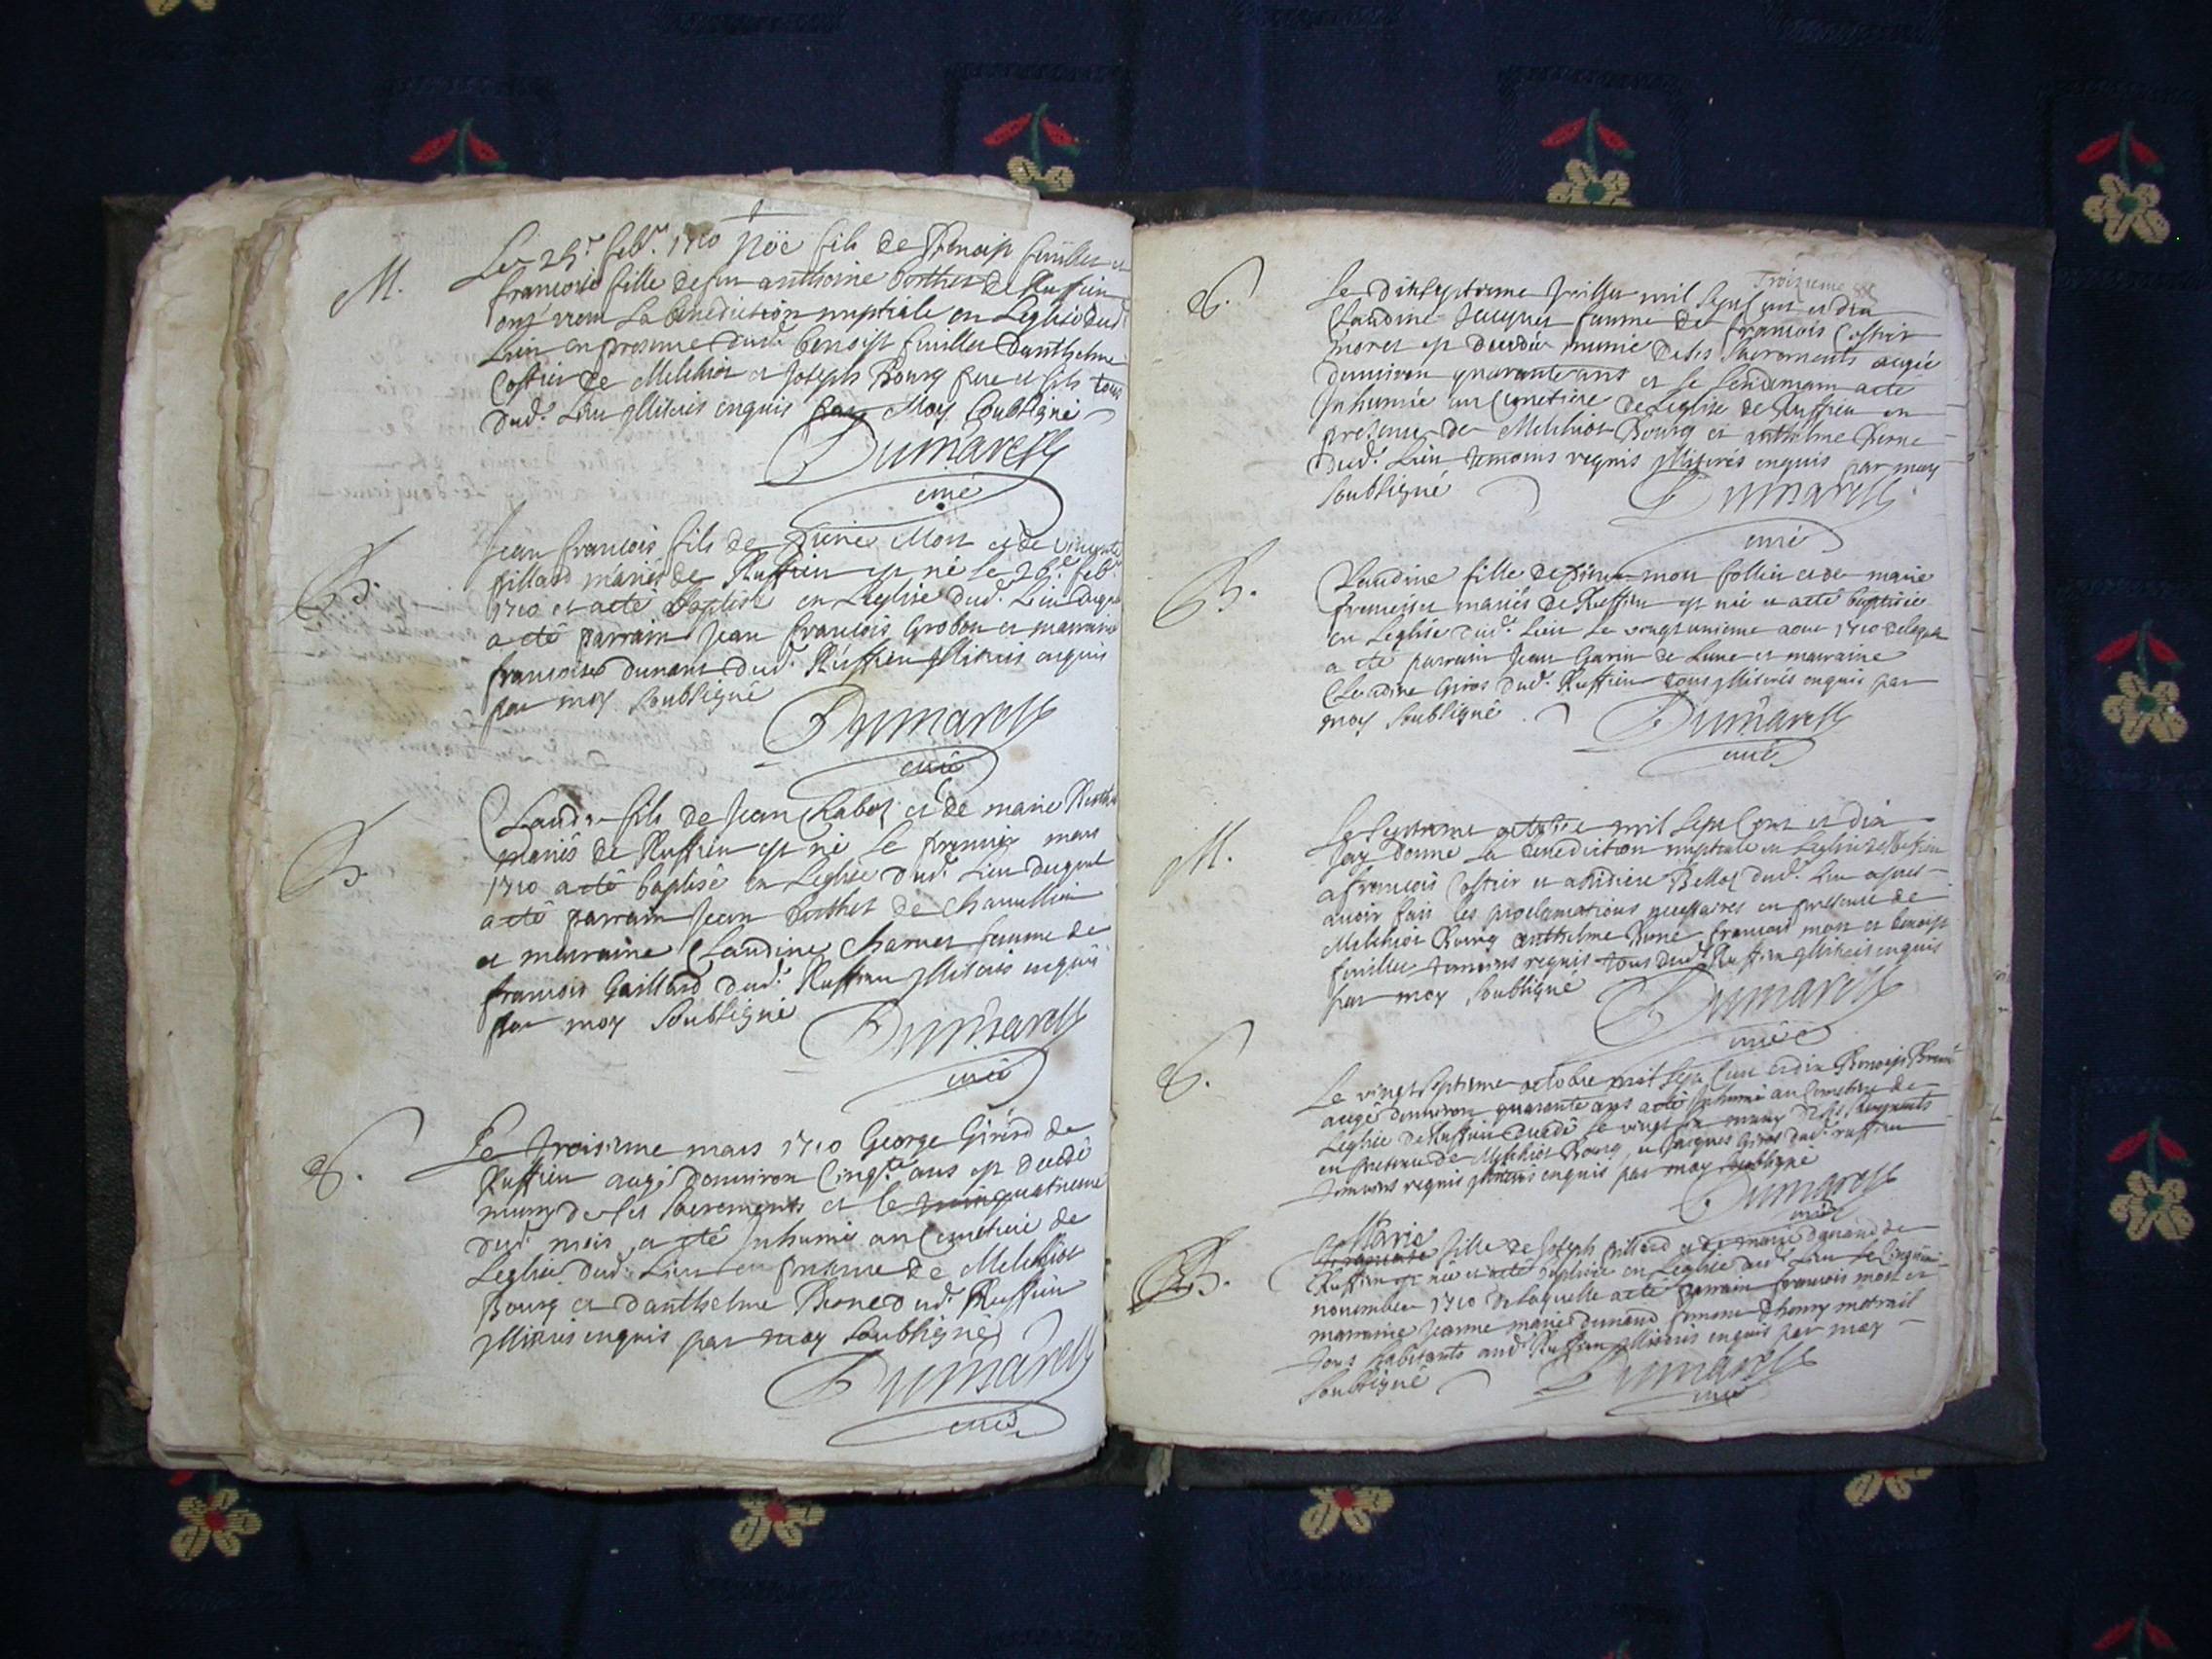 M.
Le 25e febr. 1710 Noë fils de Benoist fuillet et
francoise fille de feu anthoine berthet de Ruffieu
ont receu La benediction nuptiale en Leglise dud.
Lieu en presence dud. benoist fuillet Danthelme
Costier de Melchior et Joseph Bourg pere et fils tous
dud. Lieu Illiterés enquis par Moy soubsigné
Dumarest
curé
B.
Jean francois fils de Pierre Mort et de
pillard mariés de Ruffieu est né le 26e febr.
1710 et a eté baptisé en Leglise dud. Lieu duquel
a eté parrain Jean francois Grobon et marraine
francoise dunant dud. Ruffieu Illiterés enquis
par moy soubsigné
Dumarest
curé
B.
Claude fils de Jean Chaboz et de marie
mariés de Ruffieu est né le premier mars
1710 a eté baptisé en Leglise dud. Lieu duquel
a eté parrain Jean berthet de
et marraine Claudine Charvet femme de
francois Gaillard dud. Ruffieu Illiterés enquis
par moy soubsigné
Dumarest
curé
S.
Le troisieme mars 1710 George Girod de
Ruffieu augé denviron Cinqte ans est decedé
muny de ses sacrements et le quatrieme
dud. mois a eté Inhumé au Cimetiere de
Leglise dud. Lieu en presence de Melchior
Bourg et danthelme Berne dud. Ruffieu
Illiterés enquis par moy soubsigné
Dumarest
curé
Troisieme
S.
Le dixseptieme Juillet mil sept cent et dix
Claudine Jacquet femme de francois Costier
moret est decedée munie de ses sacrements augée
denviron quarante ans et le Lendemain a eté
Inhumée au Cimetiere de Leglise de Ruffieu en
presence de Melchior Bourg et anthelme Berne
dud. Lieu temoins requis Illiterés enquis par moy
soubsigné
Dumarest
curé
B.
Claudine fille de Pierre mort follier et de marie
mariés de Ruffieu est née et a eté baptisée
en Leglise dud. Lieu Le vingtunieme aout 1710 delaquelle
a eté parrain Jean Garin de Lune et marraine
Claudine Giros dud. Ruffieu tous Illiterés enquis par
moy soubsigné
Dumarest
curé
M.
Le septieme octobre mil sept Cent et dix
Jay donné La benediction nuptiale en Leglise de Ruffieu
a francois Costier et a Belloz dud. Lieu apres
avoir fait les proclamations necessaires en presence de
Melchior Bourg anthelme Berne francois mort et benoist
fuillet temoins requis tous dud. Ruffieu Illiterés enquis
par moy soubsigné
Dumarest
curé
S.
Le vingtseptieme octobre mil sept Cent et dix Benoist
augé denviron quarante ans a eté Inhumé au Cimetiere de
Leglise de Ruffieu decedé le vingt six muny de ses sacrements
en presence de Melchior Bourg, et Jacques Giros dud. ruffieu
temoins requis Illiterés enquis par moy soubsigné
Dumarest
curé
B.
Marie
fille de Joseph pillard et de marie dunand de
Ruffieu est née et a eté baptisée en Leglise dud. Lieu le
novembre 1710 de laquelle a eté parrain francois mort et
marraine Jeanne marie dunand femme dhenry metrail
tous habitants aud. Ruffieu Illiterés enquis par moy
soubsigné
Dumarest
curé